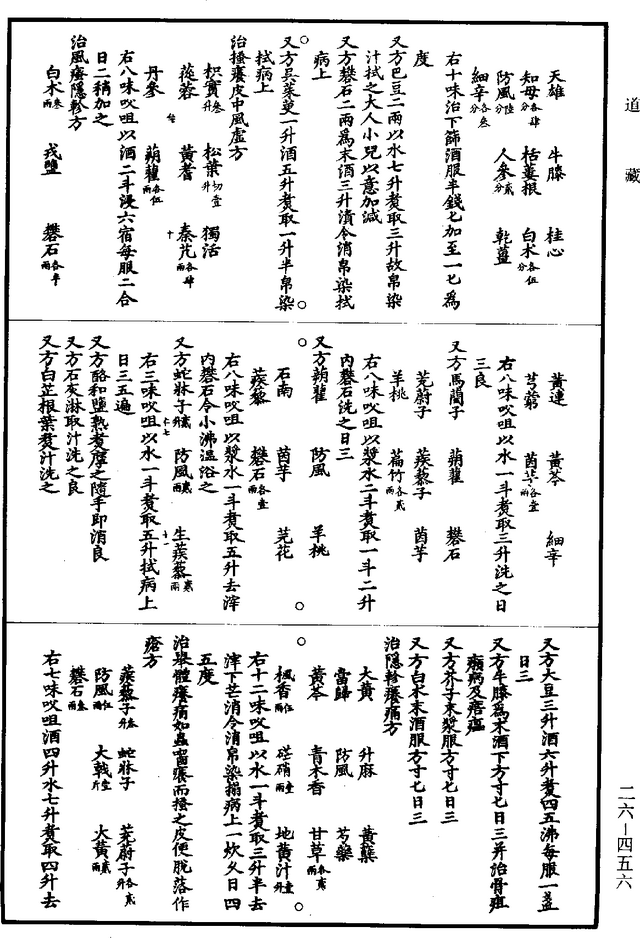 道藏
天雄　牛膝　桂心
知母各肆分　栝蔞根　白朮各伍分
防風陸分　人參貳分　乾薑
細辛各叁分
右十味治下篩酒服半錢匕加至一匕爲
度
又方巴豆二兩以水七升煑取三升故帛染
汁拭之大人小兒以意加減
又方礬石二兩爲末酒三升漬令消帛染拭
病上
又方吳茱萸一升酒五升煑取一升半帛染
拭病上
治搔癢皮中風虛方
枳實叁升　松葉切壹升　獨活
蓯蓉　黃耆　秦艽各肆兩
丹參　蒴藋各伍兩
右八味㕮咀以酒二斗浸六宿每服二合
日二稍加之
治風瘙隱軫方
白朮叁兩　戎鹽　礬石各半兩
黃連　黃芩　細辛
芎藭　茵芋各壹兩
右八味㕮咀以水一斗煑取三升洗之日
三良
又方馬藺子　蒴藋　礬石
茺蔚子　蒺藜子　茵芋
羊桃　萹竹各貳兩
右八味㕮咀以漿水二斗煑取一斗二升
內礬石洗之日三
又方蒴藋　防風　羊桃
石南　茵芋　芫花
蒺藜　礬石各壹兩
右八味㕮咀以漿水一斗煑取五升去滓
內礬石令小沸溫浴之
又方蛇牀子貳升　防風貳兩　生蒺藜貳兩
右三味㕮咀以水一斗煑取五升拭病上
日三五遍
又方酪和鹽熟煑摩之隨手即消良
又方石灰淋取汁洗之良
又方白芷根葉煑汁洗之
又方大豆三升酒六升煑四五沸每服一盞
日三
又方牛膝爲末酒下方寸匕日三并治骨疽
癩病及痞㿔
又方芥子末漿服方寸匕日三
又方白朮末酒服方寸匕日三
治隱軫癢痛方
大黃　升麻　黃蘗
當歸　防風　芍藥
黃芩　青木香　甘草各貳兩
楓香伍兩　芒硝壹兩　地黃汁壹升
右十二味㕮咀以水一斗煑取三升半去
滓下芒消令消帛染搨病上一炊久日四
五度
治舉體癢痛如蟲齧癢而搔之皮便脫落作
瘡方
蒺藜子叁升　蛇牀子　茺蔚子各貳升
防風伍兩　大戟壹斤　大黃貳兩
礬石叁兩
右七味㕮咀酒四升水七升煑取四升去
二六—四五六